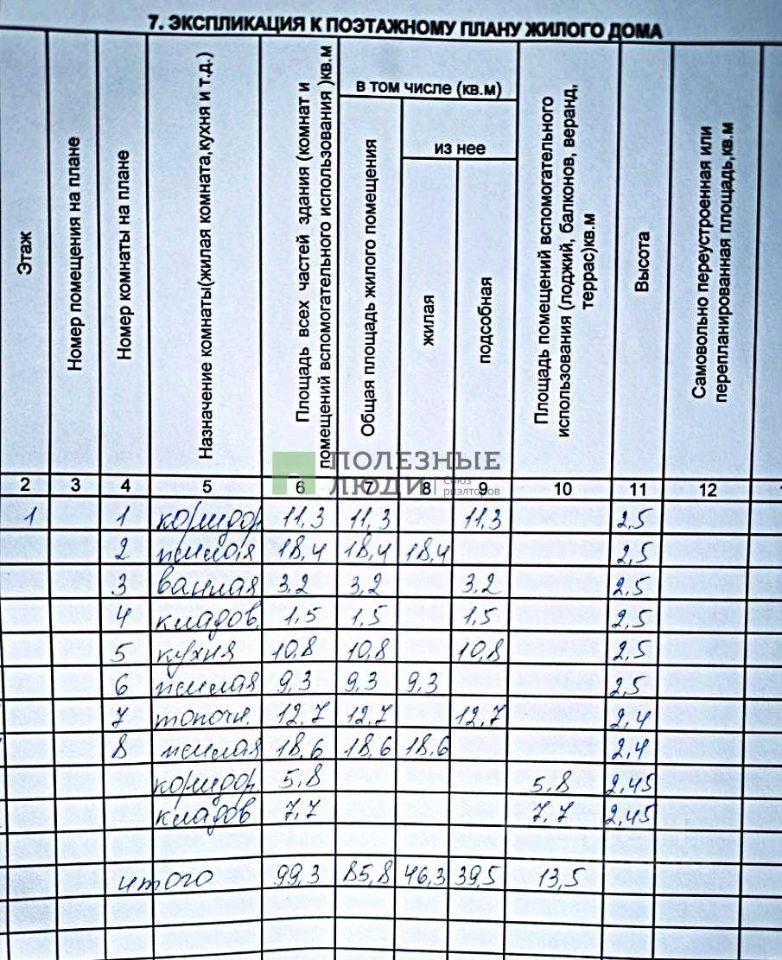 7. ЭКСПЛИКАЦИЯ К ПОЭТАЖНОМУ ПЛАНУ ЖИЛОГО ДОМА
Этаж
Номер помещения на плане
Номер комнаты на плане
Назначение комнаты(жилая комната,кухня и т.д.)
Площадь всех частей здания (комнат и
помещений вспомогательного использования )кв.м
в том числе (кв.м)
Общая площадь жилого помещения
из нее
жилая
подсобная
Площадь помещений вспомогательного
использования (лоджий, балконов, веранд,
террас)кв.м
Высота
Самовольно переустроенная или
перепланированная площадь,кв.м
ПОЛЕЗНЫЕ
ЛЮДИ
Союз
риэлторов
2 3 4 5 6 7 8 9 10 11 12
1 1 коридор 11,3 11,3 11,3 2,5
2 жилая 18,4 18,4 18,4 2,5
3 ванная 3,2 3,2 3,2 2,5
4 кладов. 1,5 1,5 1,5 2,5
5 кухня 10,8 10,8 10,8 2,5
6 жилая 9,3 9,3 9,3 2,5
7 топочн. 12,7 12,7 12,7 2,4
8 жилая 18,6 18,6 18,6 2,4
коридор 5,8 5,8 2,45
кладов 7,7 7,7 2,45
итого 99,3 85,8 46,3 39,5 13,5